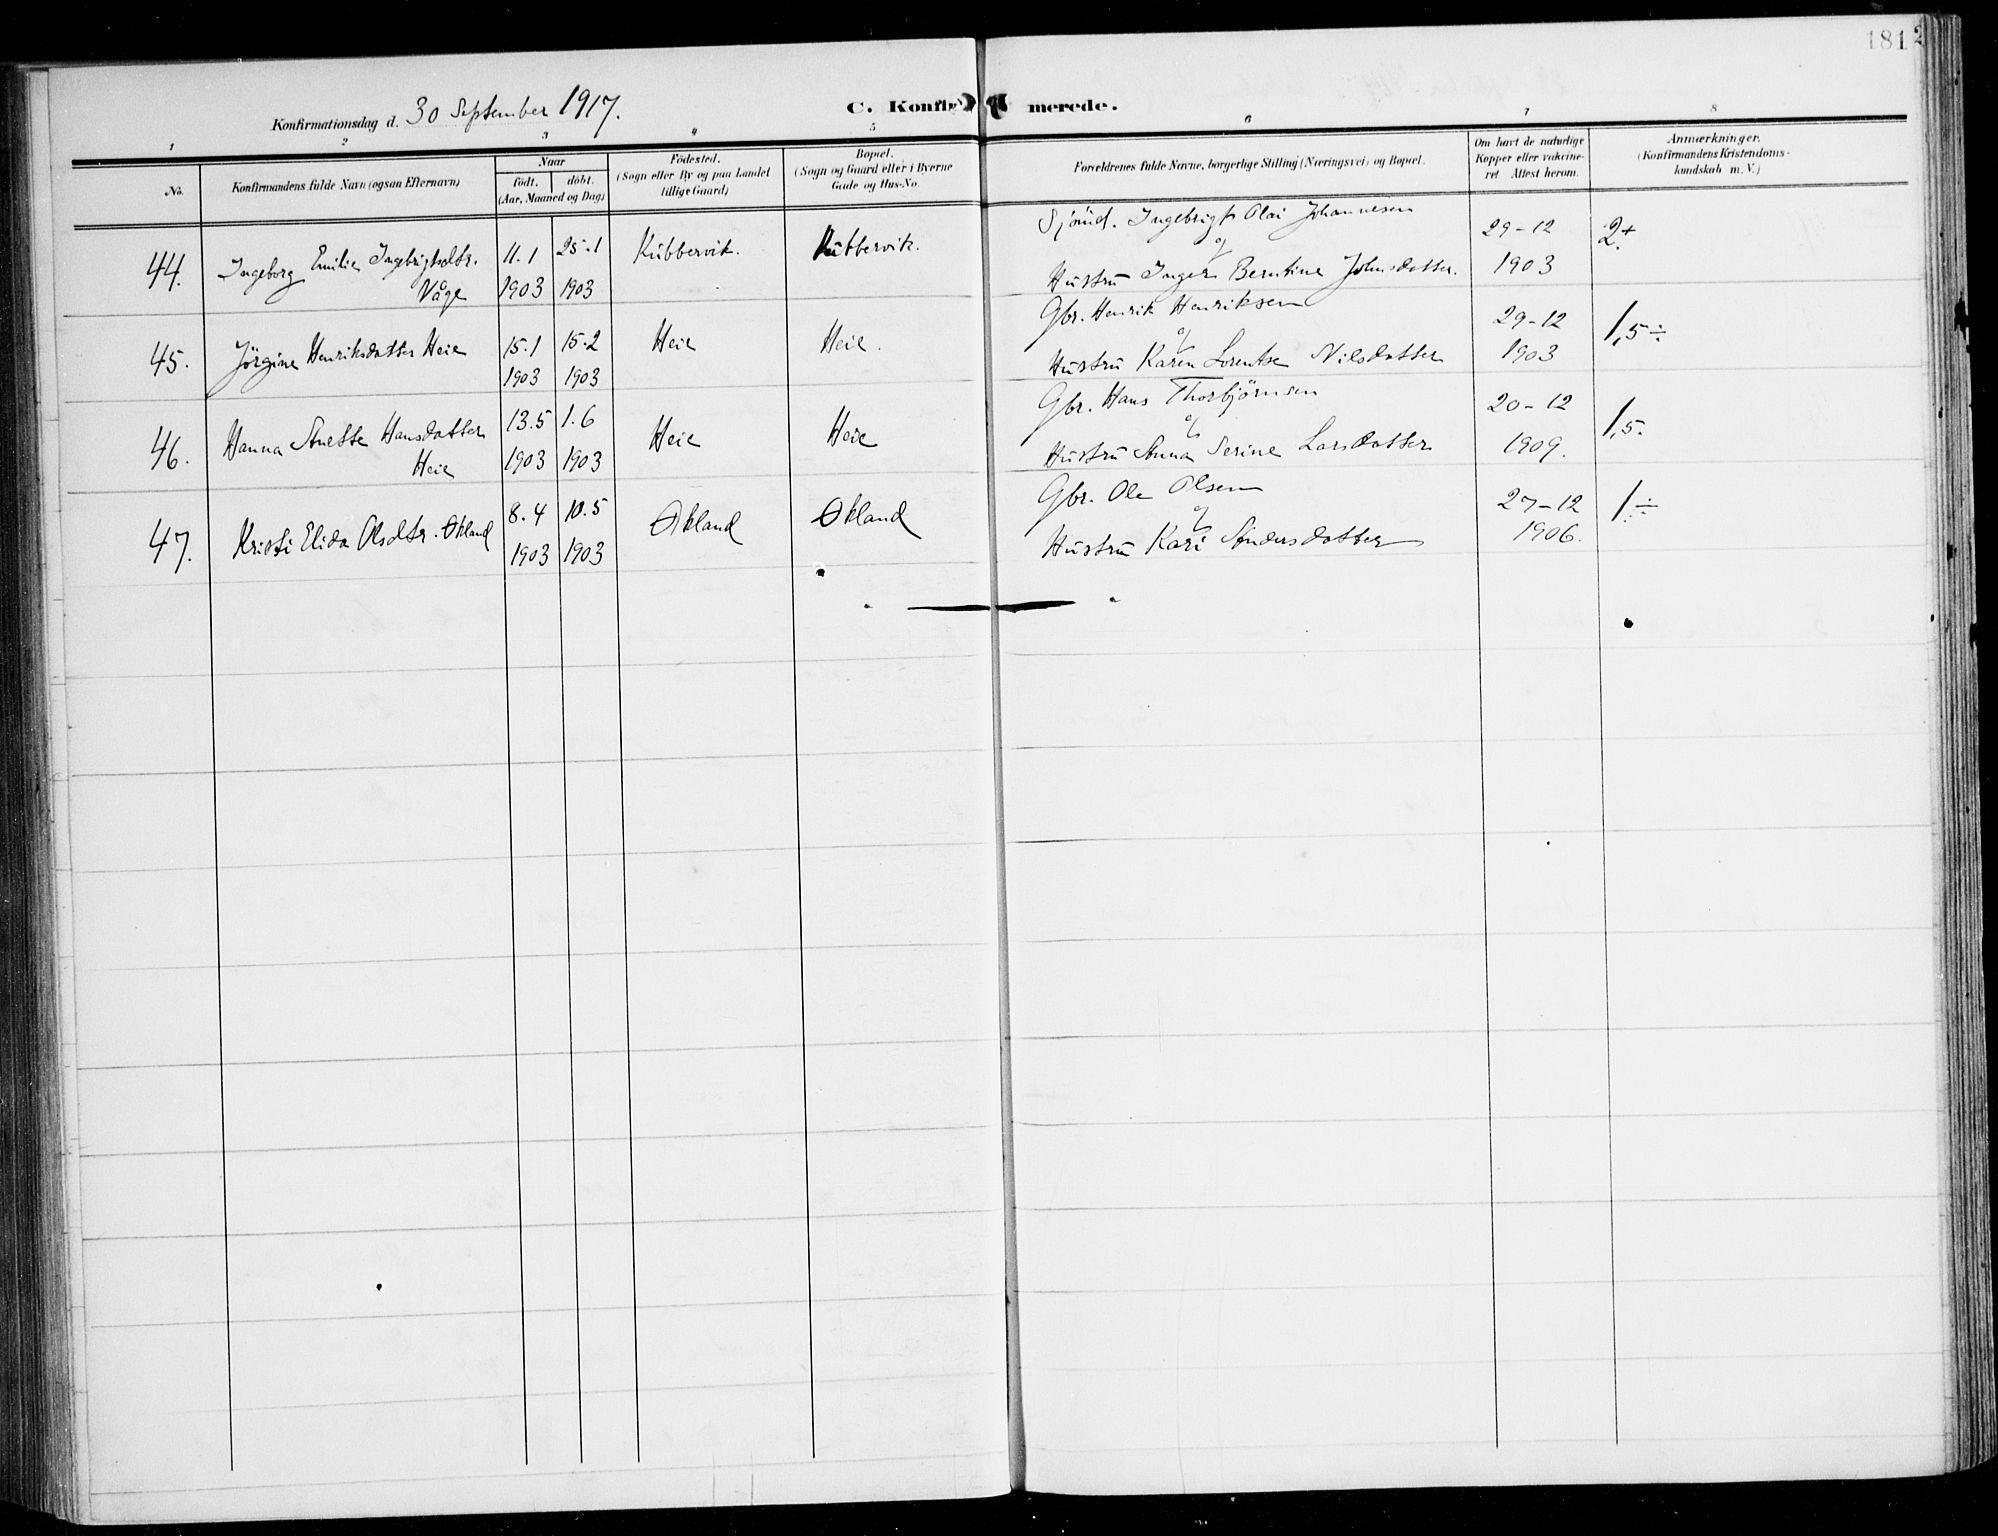 181
Konfirmationsdag d. 30 September 1917.
C. Konfir merede.
1 2 3 4 5 6 7 8
No. Konfirmandens fulde Navn (ogsaa Efternavn) Naar født. døbt. (Aar, Maaned og Dag) Fødested. (Sogn eller By og paa Landet tillige Gaard) Bopæl. (Sogn og Gaard eller i Byerne Gade og Hus-No. Forældrenes fulde Navne, borgerlige Stilling (Næringsvei) og Bopæl. Om havt de naturlige Kopper eller vakcineret Attest herom. Anmærkninger. (Konfirmandens Kristendomskundskab m. V.)
44. Ingeborg Emilie Ingebrigtsdtr. 11.1 25.1 Kubbervik. Kubbervik. Sjömd. Ingebrigt Olai Johannesen 29-12 2+
og
Våge 1903 1903 Hustru Inger Berntine Johnsdatter. 1903
45. Jörgine Henriksdatter Heie 15.1 15.2 Heie Heie. Gbr. Henrik Henriksen 29-12 1,5÷
og
1903 1903 Hustru Karen Lorentse Nilsdatter 1903
46. Hanna Anette Hansdatter 13.5 1.6 Heie Heie Gbr. Hans Thorbjörnsen 20-12 1,5.
og
Heie 1903 1903 Hustru Anna Serine Larsdatter 1909.
47. Kristi Elida Olsdtr. Økland 8.4 10.5 Økland Økland Gbr. Ole Olsen 27-12 1÷
og
1903 1903 Hustru Kari Andersdatter 1906.